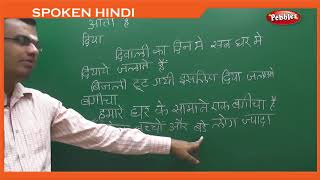 SPOKEN HINDI
Pebbles
आता है
दिया
दिवाली का दिन मे सब घर मे
दियाये जलाते हैं
बिजली टूट गयी इसलिए दिया जलाओ
बगीचा
हमारे घर के सामाने एक बगीचा है
बच्चो और बडे लोग ज्यादा